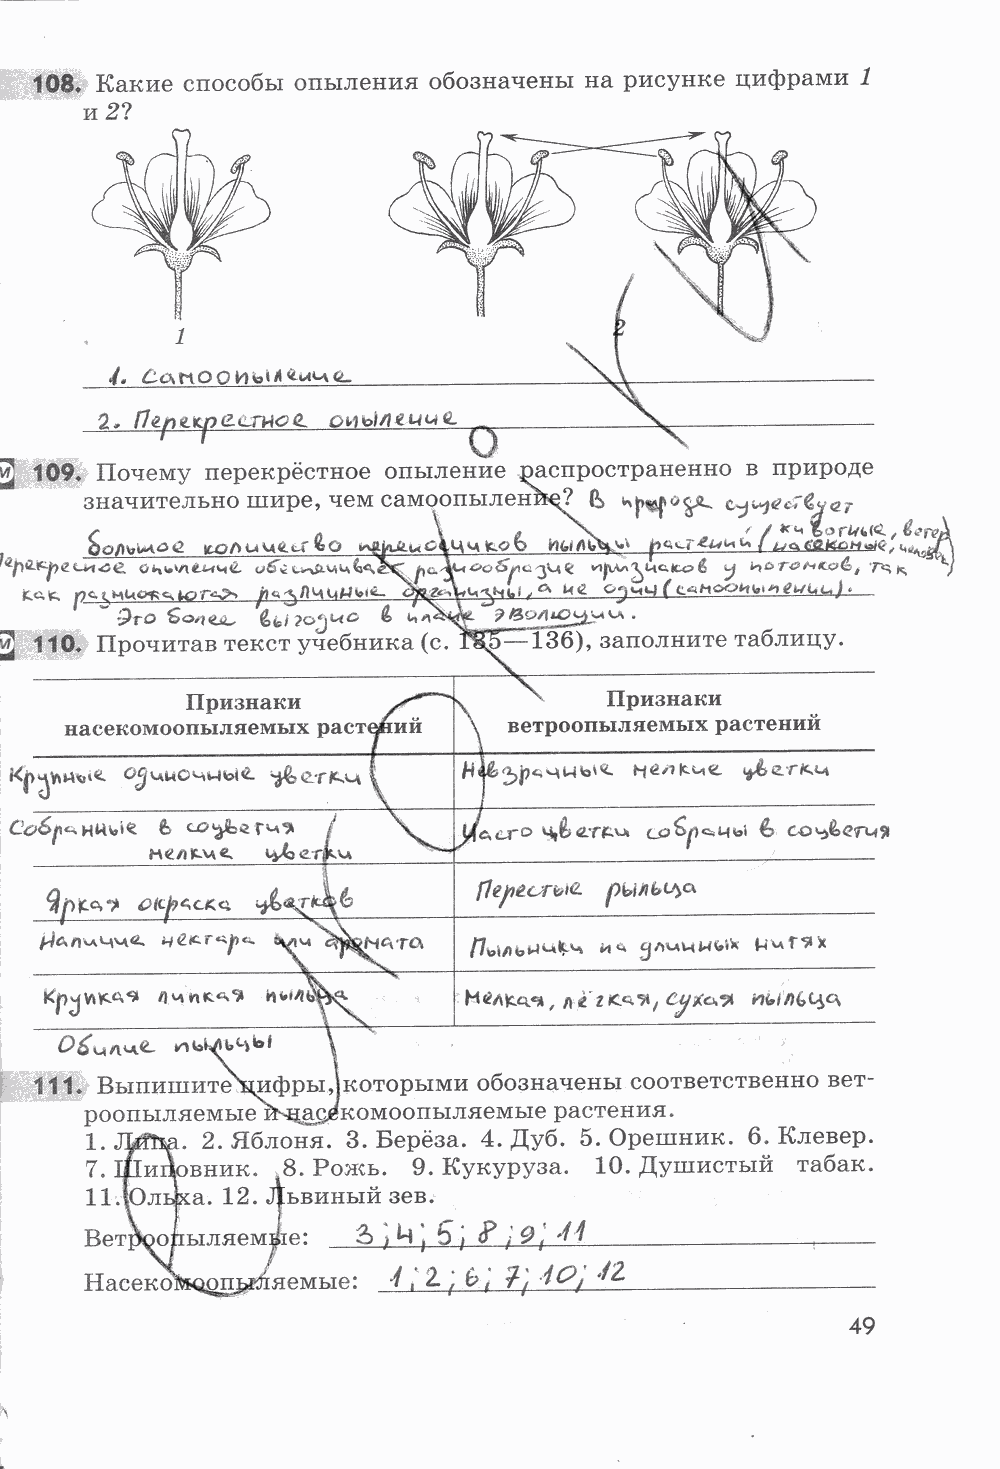 108. Какие способы опыления обозначены на рисунке цифрами 1
и 2?
1
2
1. Самоопыление
2. Перекрестное опыление
М 109. Почему перекрёстное опыление распространенно в природе
значительно шире, чем самоопыление? В природе существует
большое количество переносчиков пыльцы растений (животные, ветер
насекомые, человек)
Перекрестное опыление обеспечивает разнообразие признаков у потомков, так
как размножаются различные организмы, а не один (самоопылении).
Это более выгодно в плане эволюции.
М 110. Прочитав текст учебника (с. 135—136), заполните таблицу.
Признаки
насекомоопыляемых растений
Признаки
ветроопыляемых растений
Крупные одиночные цветки
Невзрачные мелкие цветки
Собранные в соцветия
мелкие цветки
Часто цветки собраны в соцветия
Яркая окраска цветков
Перестые рыльца
Наличие нектара или аромата
Пыльники на длинных нитях
Крупкая липкая пыльца
Мелкая, лёгкая, сухая пыльца
Обилие пыльцы
111. Выпишите цифры, которыми обозначены соответственно вет-
роопыляемые и насекомоопыляемые растения.
1. Липа. 2. Яблоня. 3. Берёза. 4. Дуб. 5. Орешник. 6. Клевер.
7. Шиповник. 8. Рожь. 9. Кукуруза. 10. Душистый табак.
11. Ольха. 12. Львиный зев.
Ветроопыляемые: 3; 4; 5; 8; 9; 11
Насекомоопыляемые: 1; 2; 6; 7; 10; 12
49